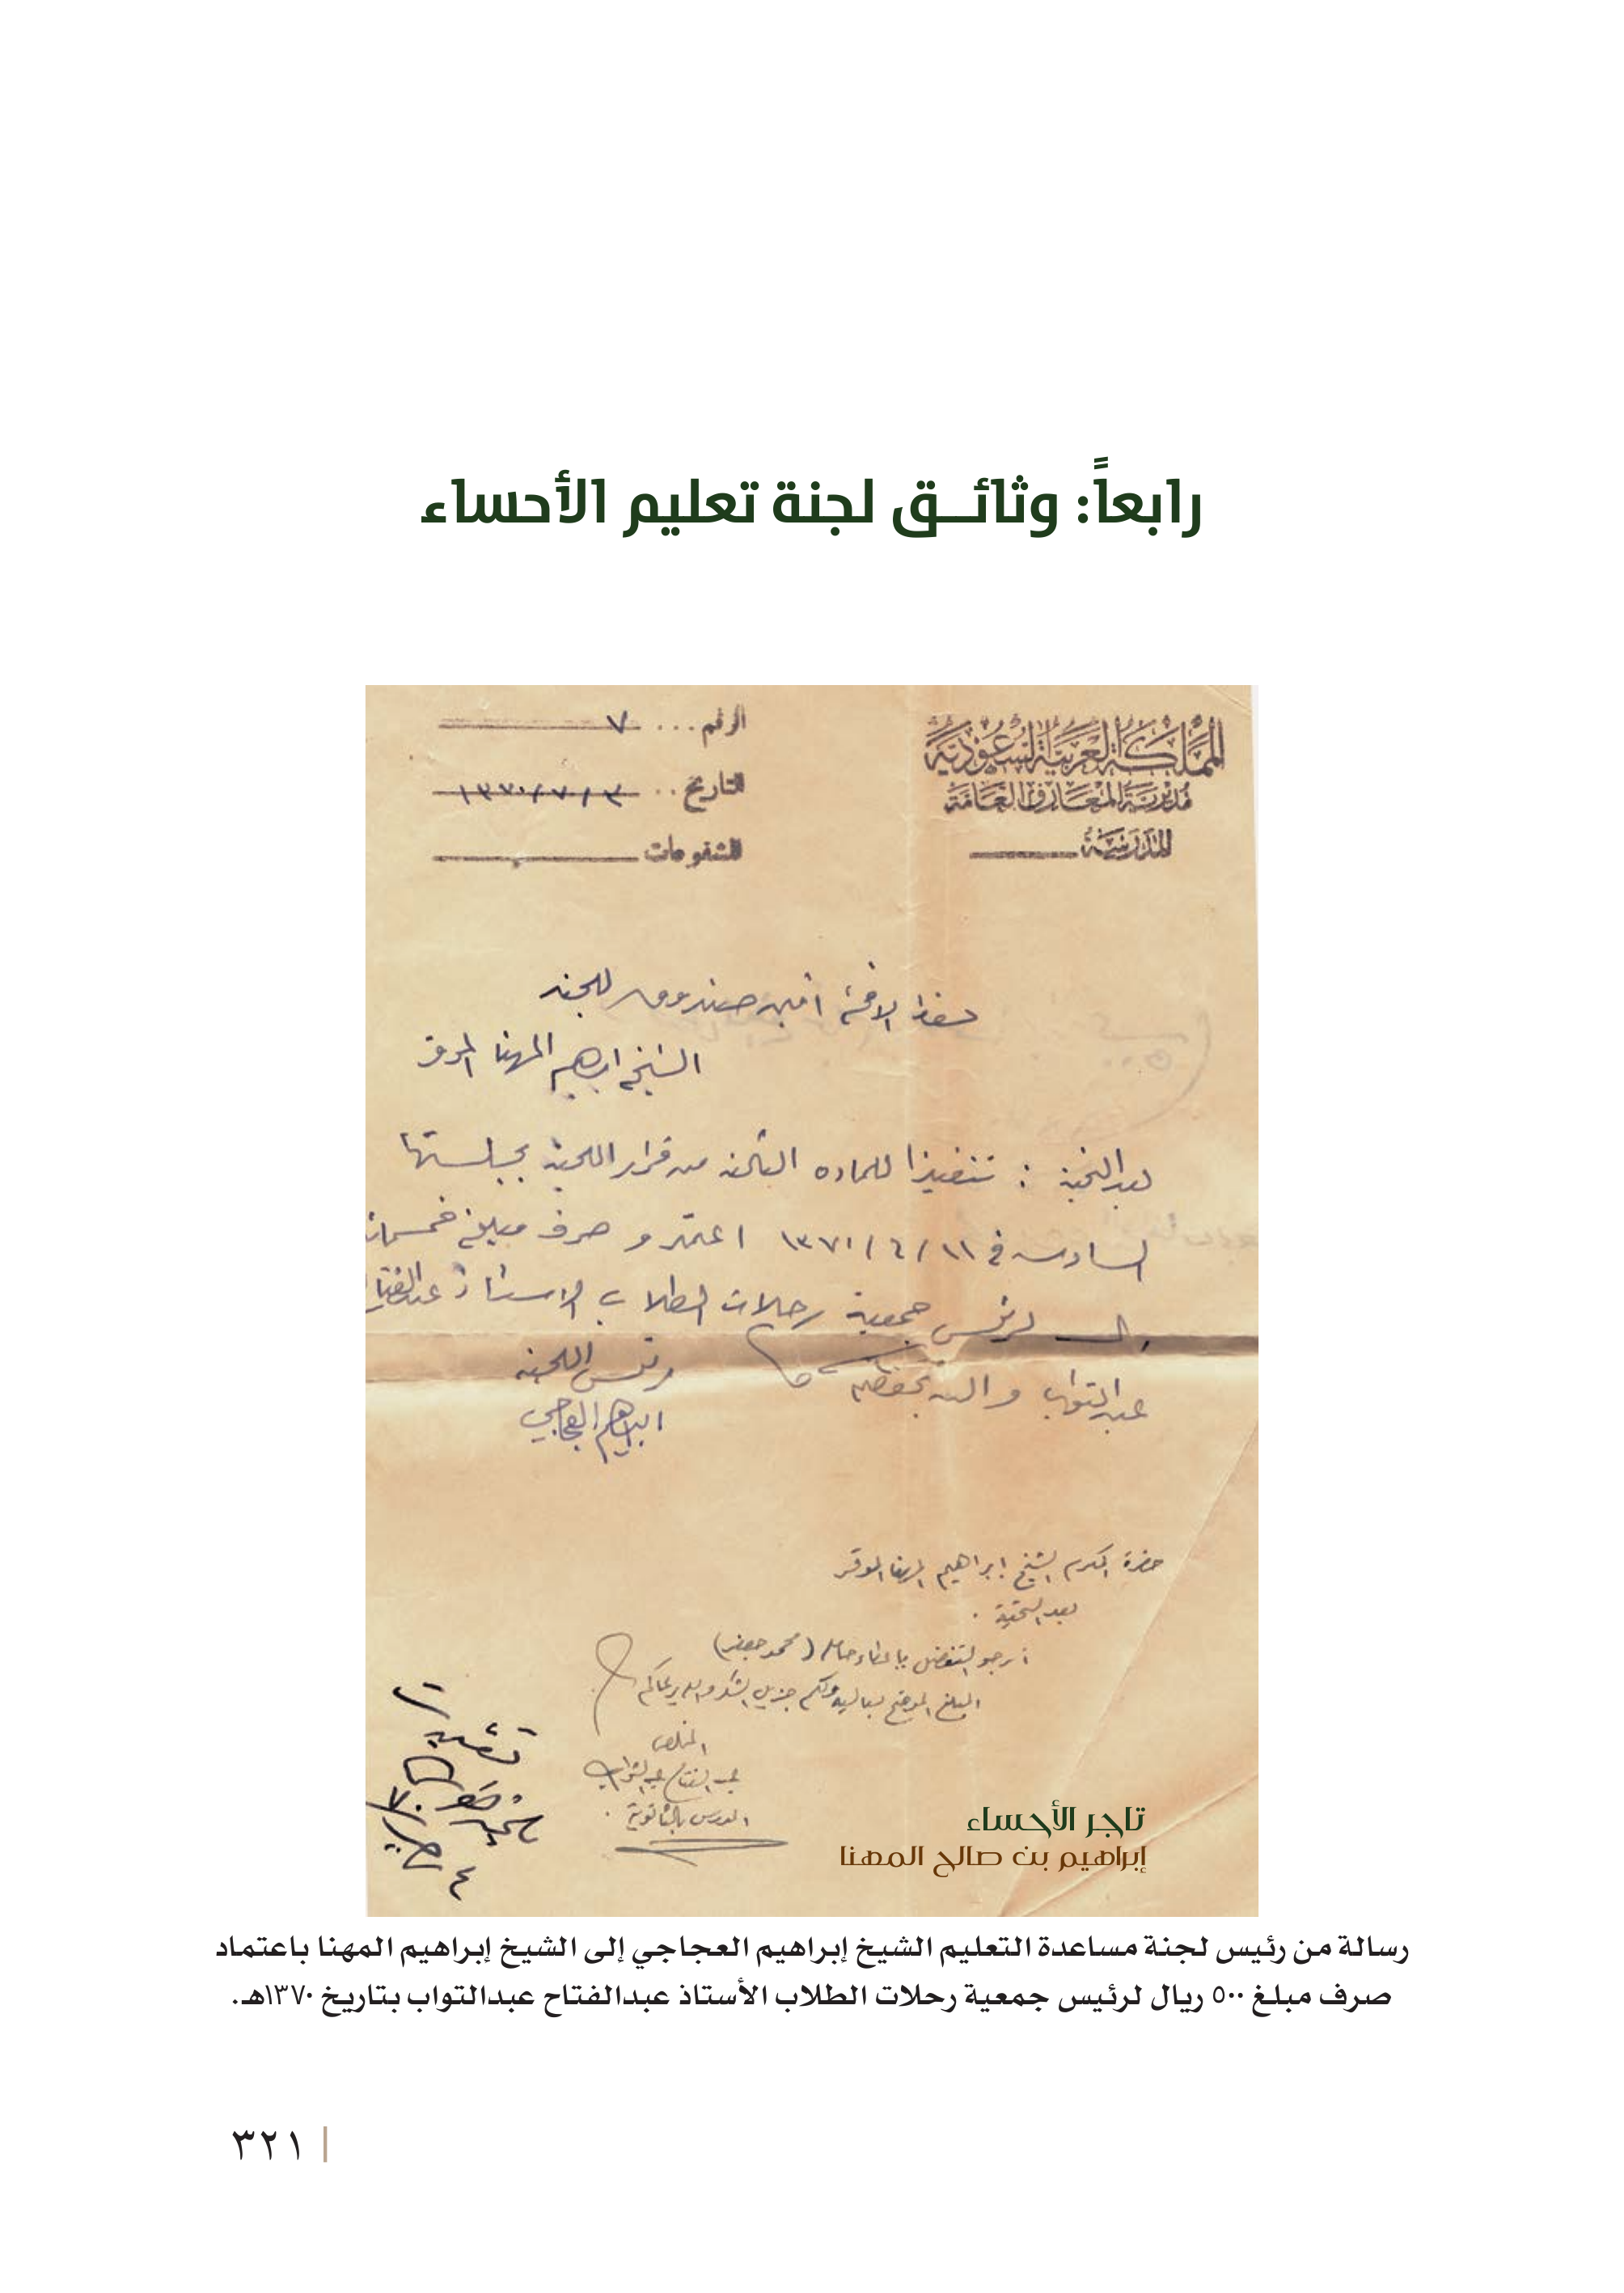 رابعاً: وثائـــق لجنة تعليم الأحساء
المملكة العربية السعودية
مديرية المعارف العامة
المدرسة
الرقم ... ٧
التاريخ .. ١٣٧٠/٧/٣
المشفوعات
الاخ امين صندوق اللجنه
الشيخ ابراهيم المهنا الموقر
بعد التحية : تنفيذا للماده الثالثه من قرار اللجنة بجلستها
السادسه في ١١ / ٦ / ١٣٧٠ اعتمدو صرف مبلغ خمسمائة
ريال لرئيس جمعية رحلات الطلاب الاستاذ عبدالفتاح
عبدالتواب والله يحفظكم
رئيس اللجنه
ابراهيم العجاجي
حضرة المكرم الشيخ إبراهيم المهنا الموقر
بعد التحية .
أرجو التفضل بإعطاء حامله (محمد جعفر)
المبلغ الموضح بعاليه ولكم جزيل الشكر والله يرعاكم
المخلص
عبد الفتاح عبد التواب
المدرس بالثانوية .
تاجر الأحساء
إبراهيم بن صالح المهنا
رسالة من رئيس لجنة مساعدة التعليم الشيخ إبراهيم العجاجي إلى الشيخ إبراهيم المهنا باعتماد
صرف مبلغ ٥٠٠ ريال لرئيس جمعية رحلات الطلاب الأستاذ عبدالفتاح عبدالتواب بتاريخ ١٣٧٠هـ.
٣٢١